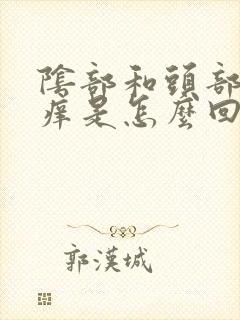 陰部和頭部
癢是怎麼回
郭漢城